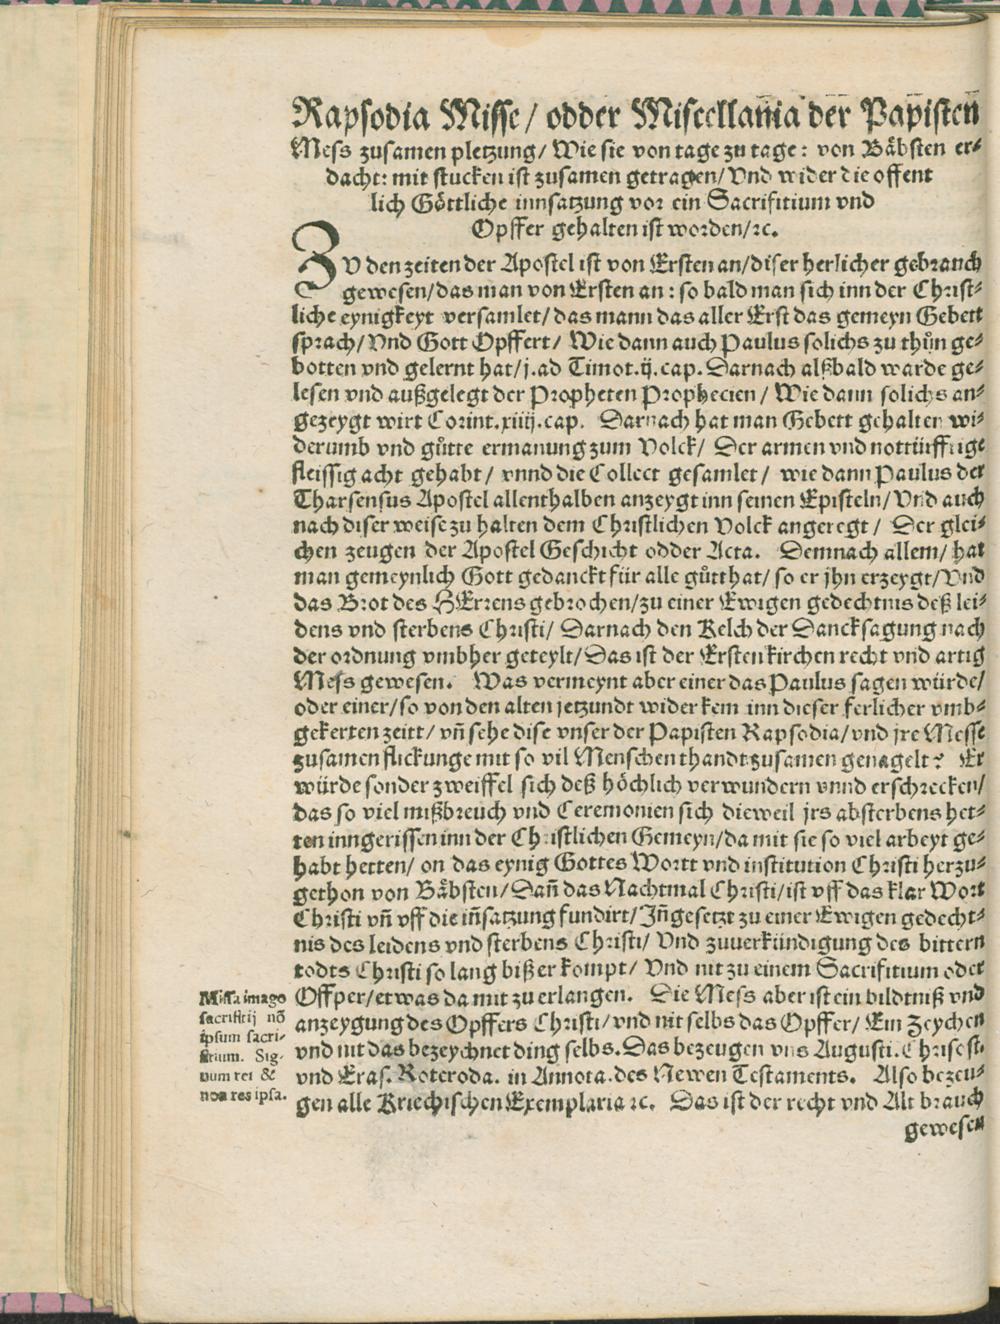 Rapsodia Misse/ odder Miscellania der Papisten
Mess zusamen pletzung/ Wie sie von tage zu tage: von Bäbsten er⸗
dacht: mit stucken ist zusamen getragen/ Vnd wider die offent
lich Göttliche innsatzung vor ein Sacrifitium vnd
Opffer gehalten ist worden/ ꝛc.
ZV den zeiten der Apostel ist von Ersten an/ diser herlicher gebrauch
gewesen/ das man von Ersten an: so bald man sich inn der Christ⸗
liche eynigkeyt versamlet/ das mann das aller Erst das gemeyn Gebett
sprach/ Vnd Gott Opffert/ Wie dann auch Paulus solichs zu thůn ge⸗
botten vnd gelernt hat/ j. ad Timot. ij. cap. Darnach alßbald warde ge⸗
lesen vnd außgelegt der Propheten Prophecien/ Wie dann solichs an⸗
gezeygt wirt Corint. xiiij. cap. Darnach hat man Gebett gehalten wi⸗
derumb vnd gůtte ermanung zum Volck/ Der armen vnd nottürfftige
fleissig acht gehabt/ vnnd die Collect gesamlet/ wie dann Paulus der
Tharsensus Apostel allenthalben anzeygt inn seinen Episteln/ Vnd auch
nach diser weise zu halten dem Christlichen Volck angeregt/ Der glei⸗
chen zeugen der Apostel Geschicht odder Acta. Demnach allem/ hat
man gemeynlich Gott gedanckt für alle gůtthat/ so er jhn erzeygt/ Vnd
das Brot des HErrens gebrochen/ zu einer Ewigen gedechtnis deß lei⸗
dens vnd sterbens Christi/ Darnach den Kelch der Dancksagung nach
der ordnung vmbher geteylt/ Das ist der Ersten kirchen recht vnd artig
Mess gewesen. Was vermeynt aber einer das Paulus sagen würde/
oder einer/ so von den alten jetzundt wider kem inn dieser ferlicher vmb⸗
gekerten zeitt/ vñ sehe dise vnser der Papisten Rapsodia/ vnd jre Messe
zusamen flickunge mit so vil Menschen thandt zusamen genagelt? Er
würde sonder zweiffel sich deß höchlich verwundern vnnd erschrecken/
das so viel mißbreuch vnd Ceremonien sich dieweil jrs absterbens het⸗
ten inngerissen inn der Christlichen Gemeyn/ da mit sie so viel arbeyt ge⸗
habt hetten/ on das eynig Gottes Wortt vnd institution Christi herzu⸗
gethon von Bäbsten/ Dañ das Nachtmal Christi/ ist vff das klar Wort
Christi vñ vff die iñsatzung fundirt/ Jñgesetzt zu einer Ewigen gedecht⸗
nis des leidens vnd sterbens Christi/ Vnd zuuerkündigung des bittern
todts Christi so lang biß er kompt/ Vnd nit zu einem Sacrifitium oder
Offper/ etwas da mit zu erlangen. Die Mess aber ist ein bildtniß vnd
anzeygung des Opffers Christi/ vnd nit selbs das Opffer/ Ein Zeychen
vnd nit das bezeychnet ding selbs. Das bezeugen vns Augusti. Chrisost.
vnd Eras. Roteroda. in Annota. des Newen Testaments. Also bezeu⸗
gen alle Kriechischen Exemplaria ꝛc. Das ist der recht vnd Alt brauch
gewesen
Missa imago
sacrifitij nō
ipsum sacri⸗
fitium. Sig⸗
num rei &
non res ipsa.